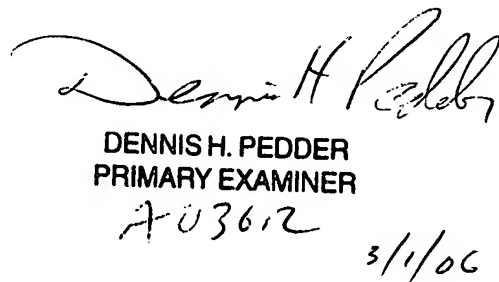 Dennis H Pedder
DENNIS H. PEDDER
PRIMARY EXAMINER
AU 3612
3/1/06